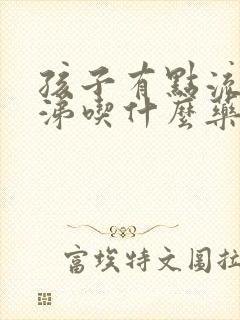 孩子有點流
涕喫什麼藥
富埃特文圖拉